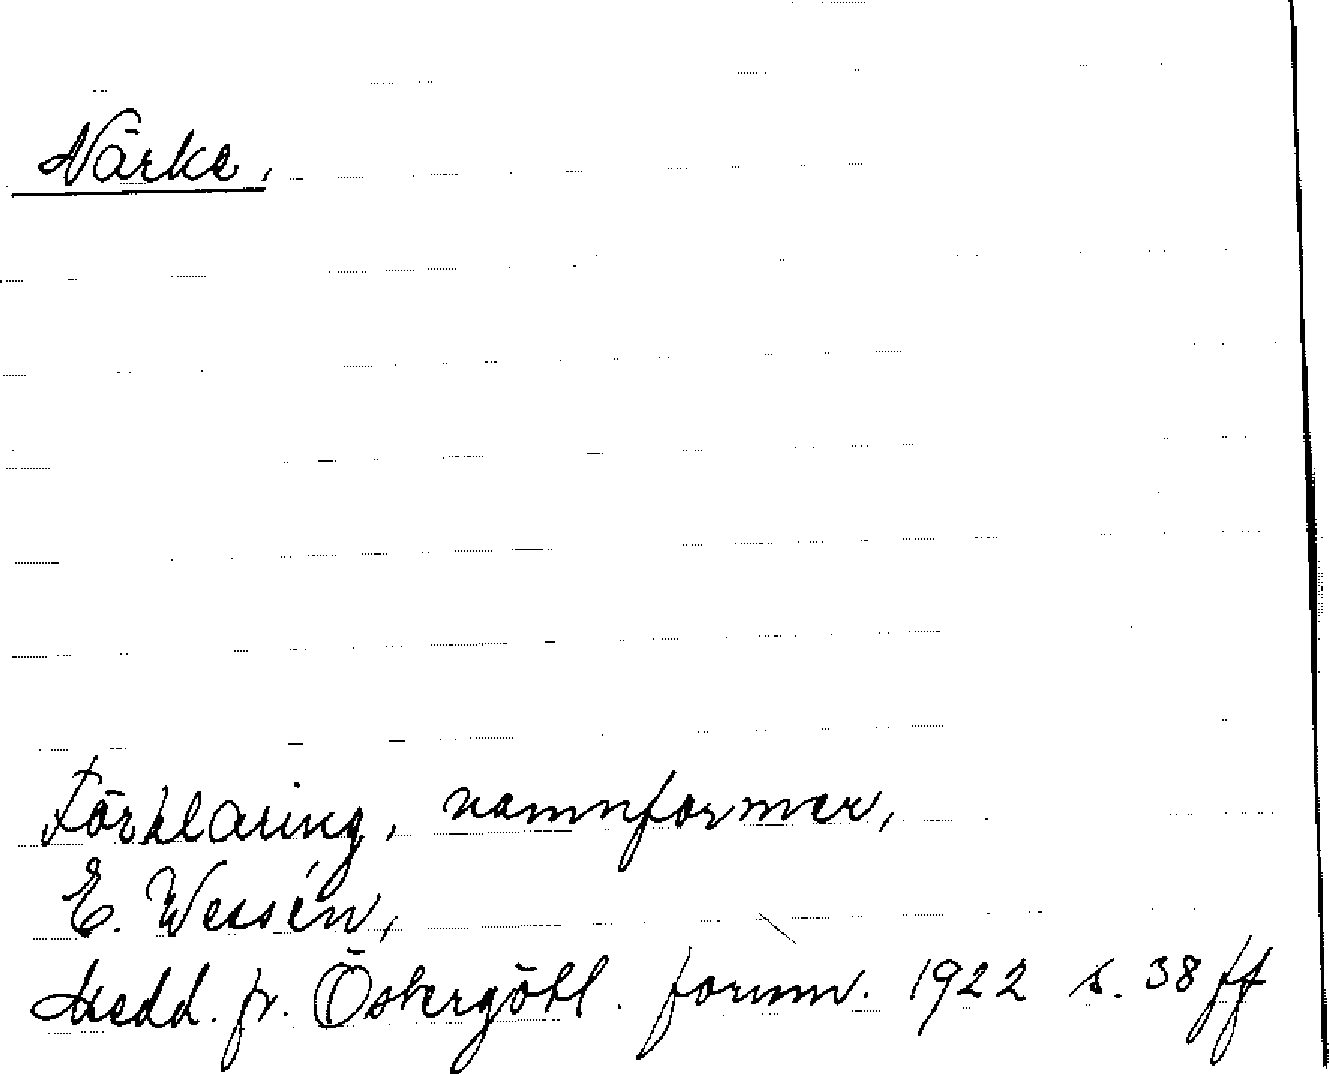 Närke.
Förklaring, namnformer,
E. Wessén,
Medd. fr. Östergötl. fornm. 1922 s. 38 ff